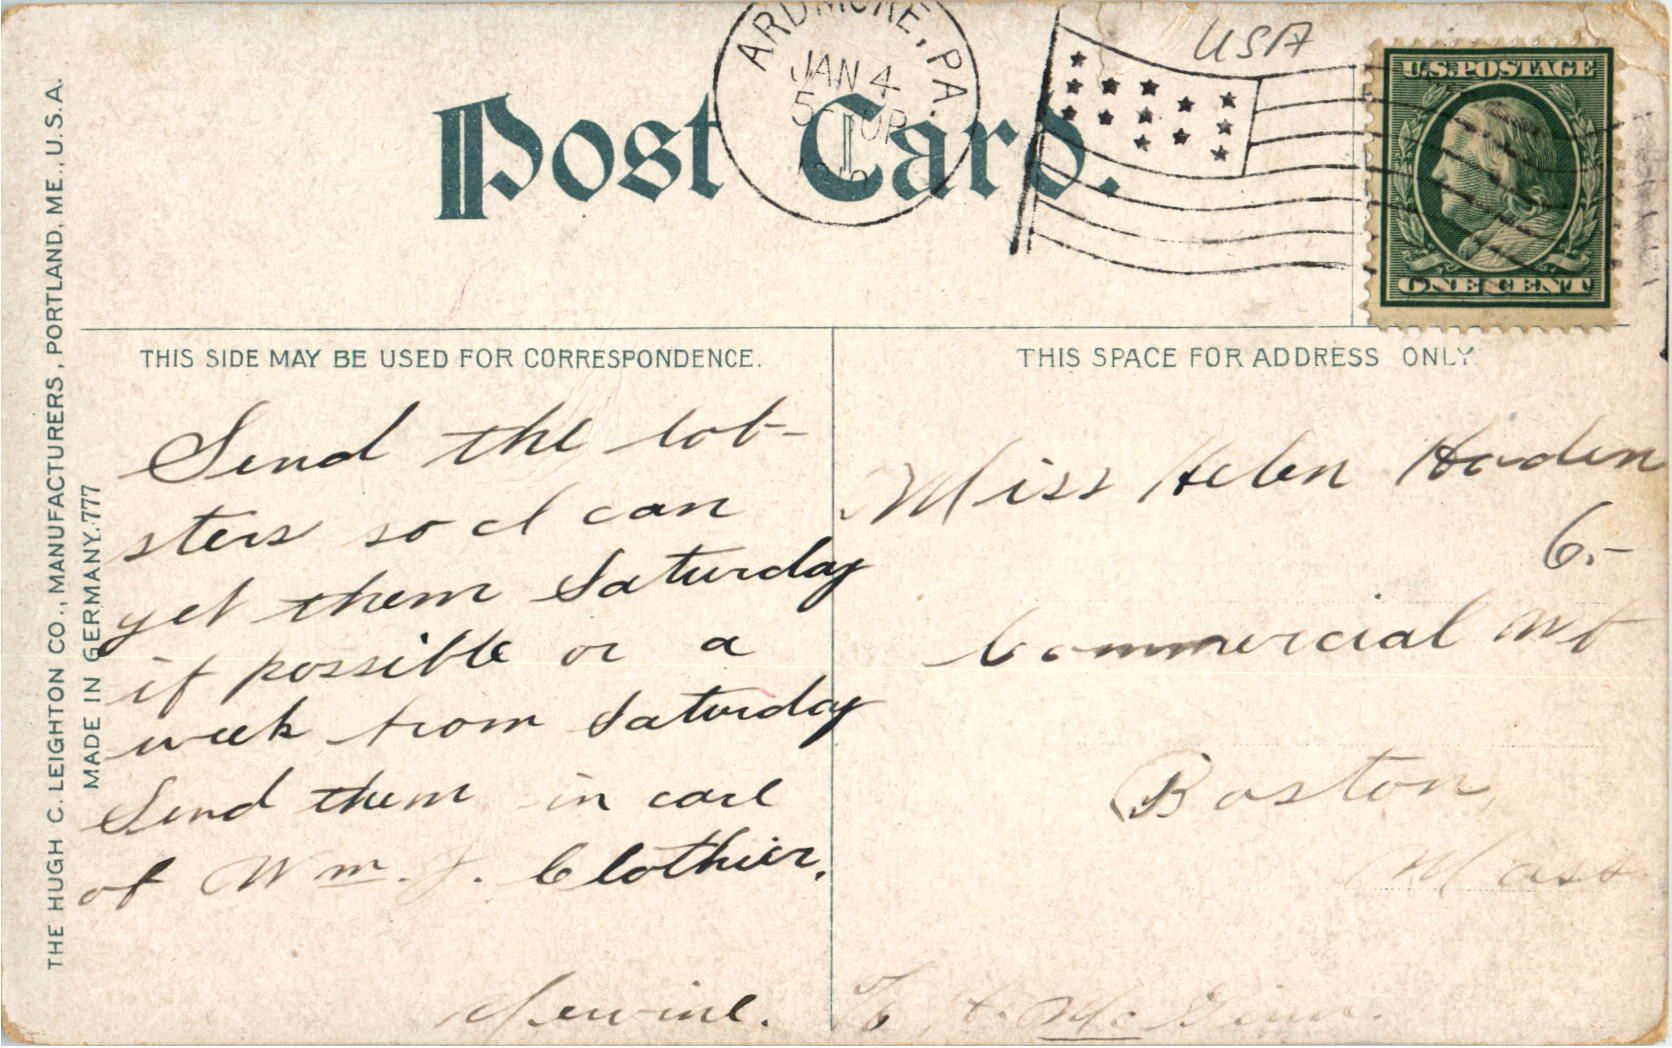 THE HUGH C. LEIGHTON CO., MANUFACTURERS, PORTLAND, ME., U.S.A.
MADE IN GERMANY. 777
Post Card.
ARDMORE, PA.
JAN 4
USA
U.S. POSTAGE
ONE CENT
THIS SIDE MAY BE USED FOR CORRESPONDENCE.
Send the lob-
sters so I can
get them Saturday
if possible or a
week from Saturday
Send them in care
of Wm. J. Clothier.
THIS SPACE FOR ADDRESS ONLY.
Miss Helen
6.-
Commercial
Boston,
Mass